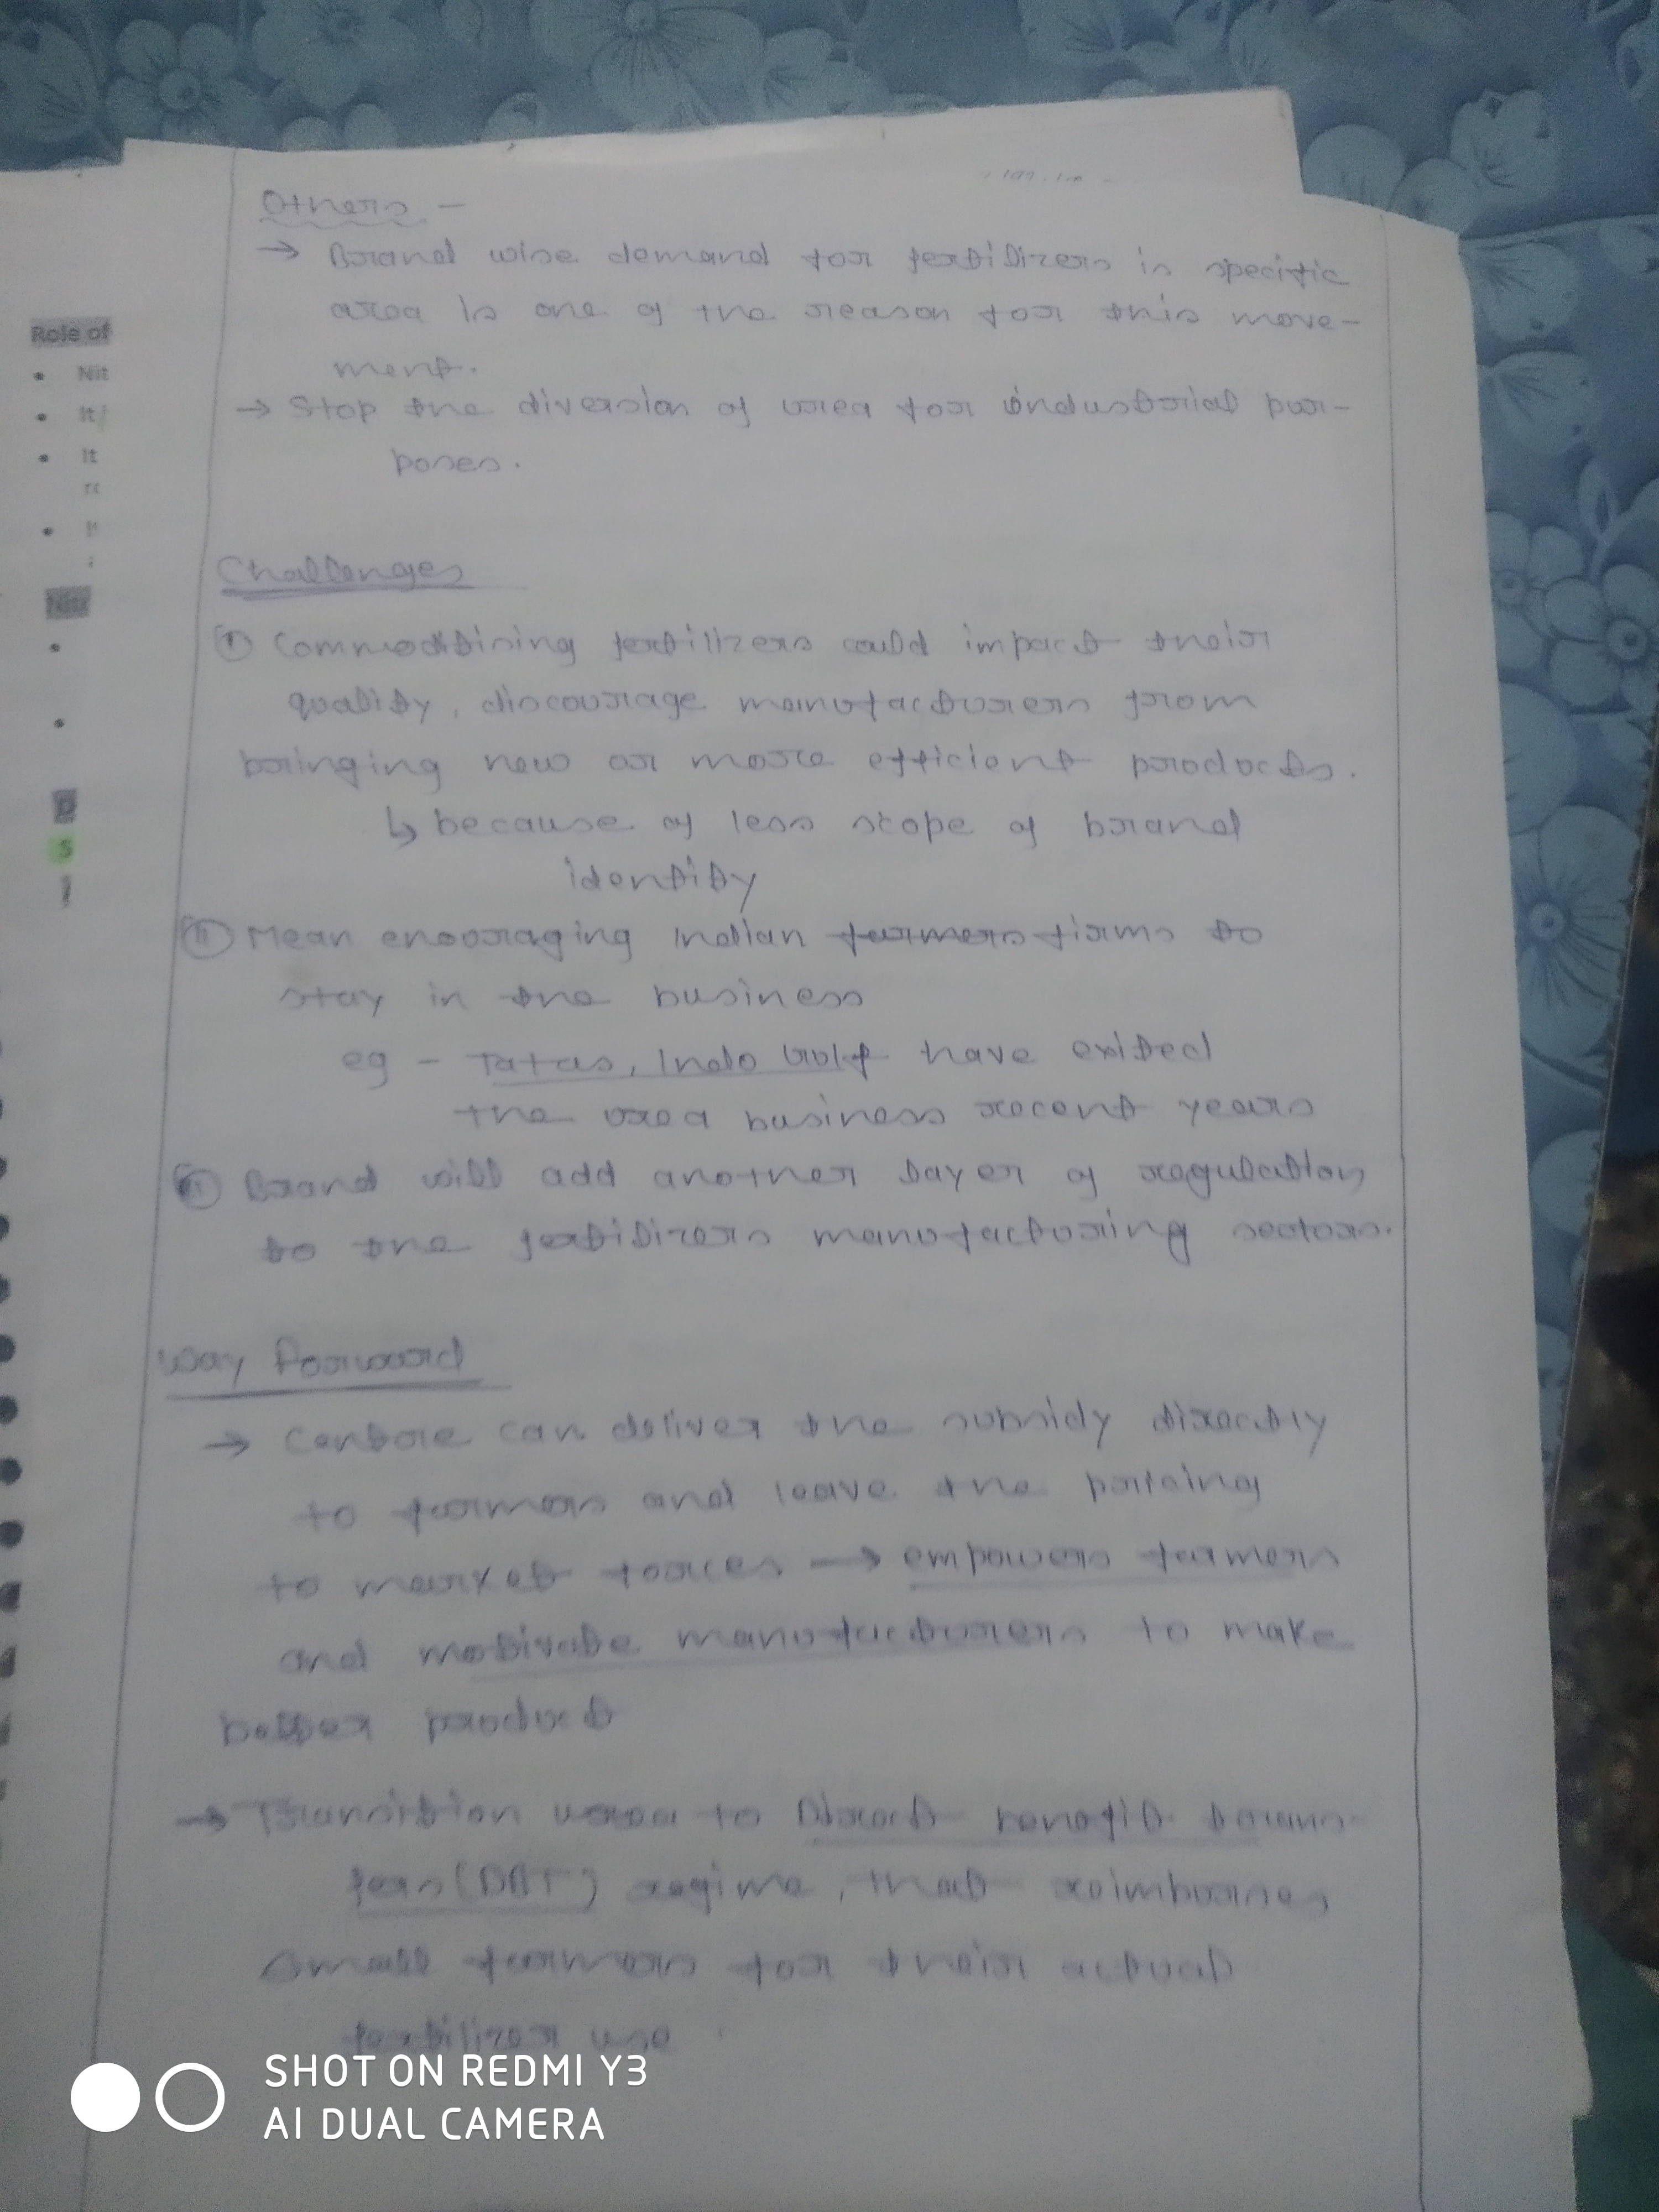 Others -
→ Brand wise demand for fertilizers in specific
area is one of the reason for this move-
ment.
→ Stop the diversion of urea for industrial pur-
poses.
Challenges
① Commoditising fertilizers could impact their
quality, discourage manufacturers from
bringing new or more efficient products.
↳ because of less scope of brand
identity
⑪ Mean encouraging Indian farmers firms to
stay in the business
eg - Tatas, Indo Gulf have exited
the urea business recent years
Brand will add another layer of regulation
to the fertilizers manufacturing sectors.
Way Forward
→ Centre can deliver the subsidy directly
to farmers and leave the pricing
to market forces → empowers farmers
and motivate manufacturers to make
better product
→ Transition urea to Direct benefit trans-
fers (DBT) regime, that reimburses
small farmers for their actual
fertilizer use
Role of
• Nit
• It
• It
SHOT ON REDMI Y3
AI DUAL CAMERA